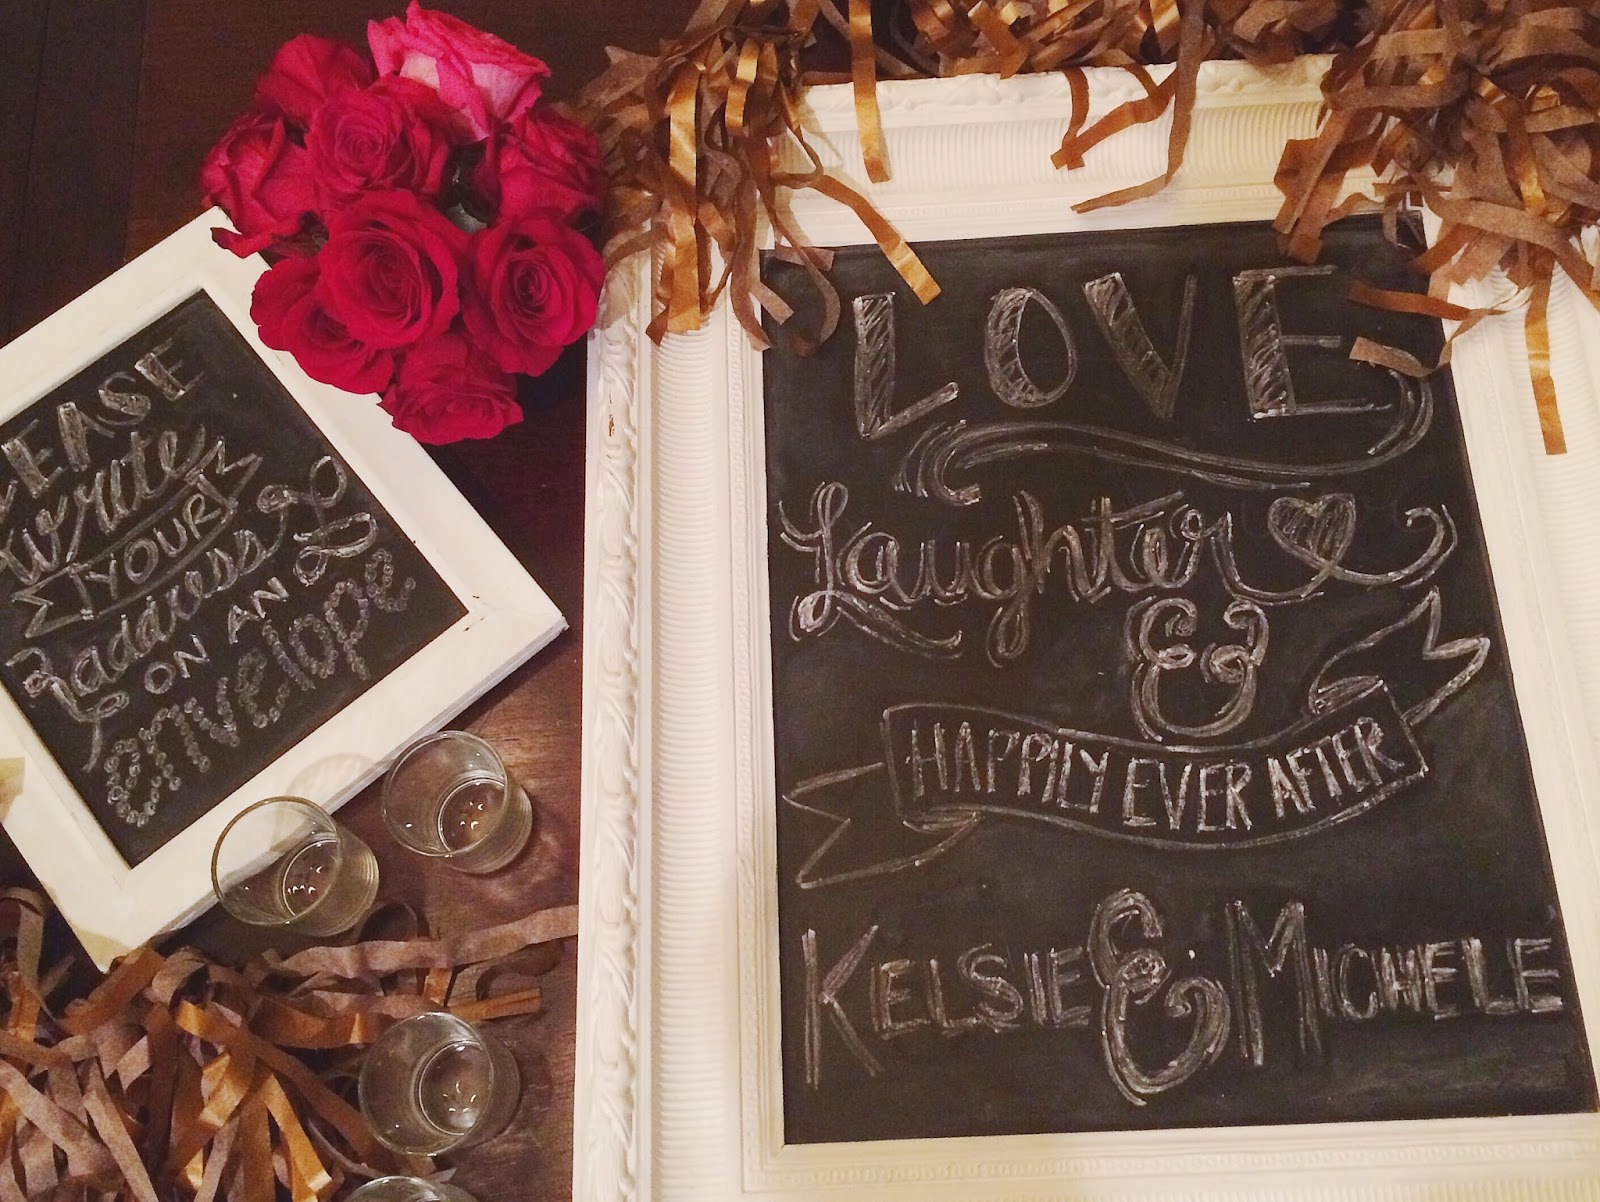 EASE
write
YOUR
address
ON AN
envelope
LOVE
Laughter
&
HAPPILY EVER AFTER
KELSIE & MICHELE